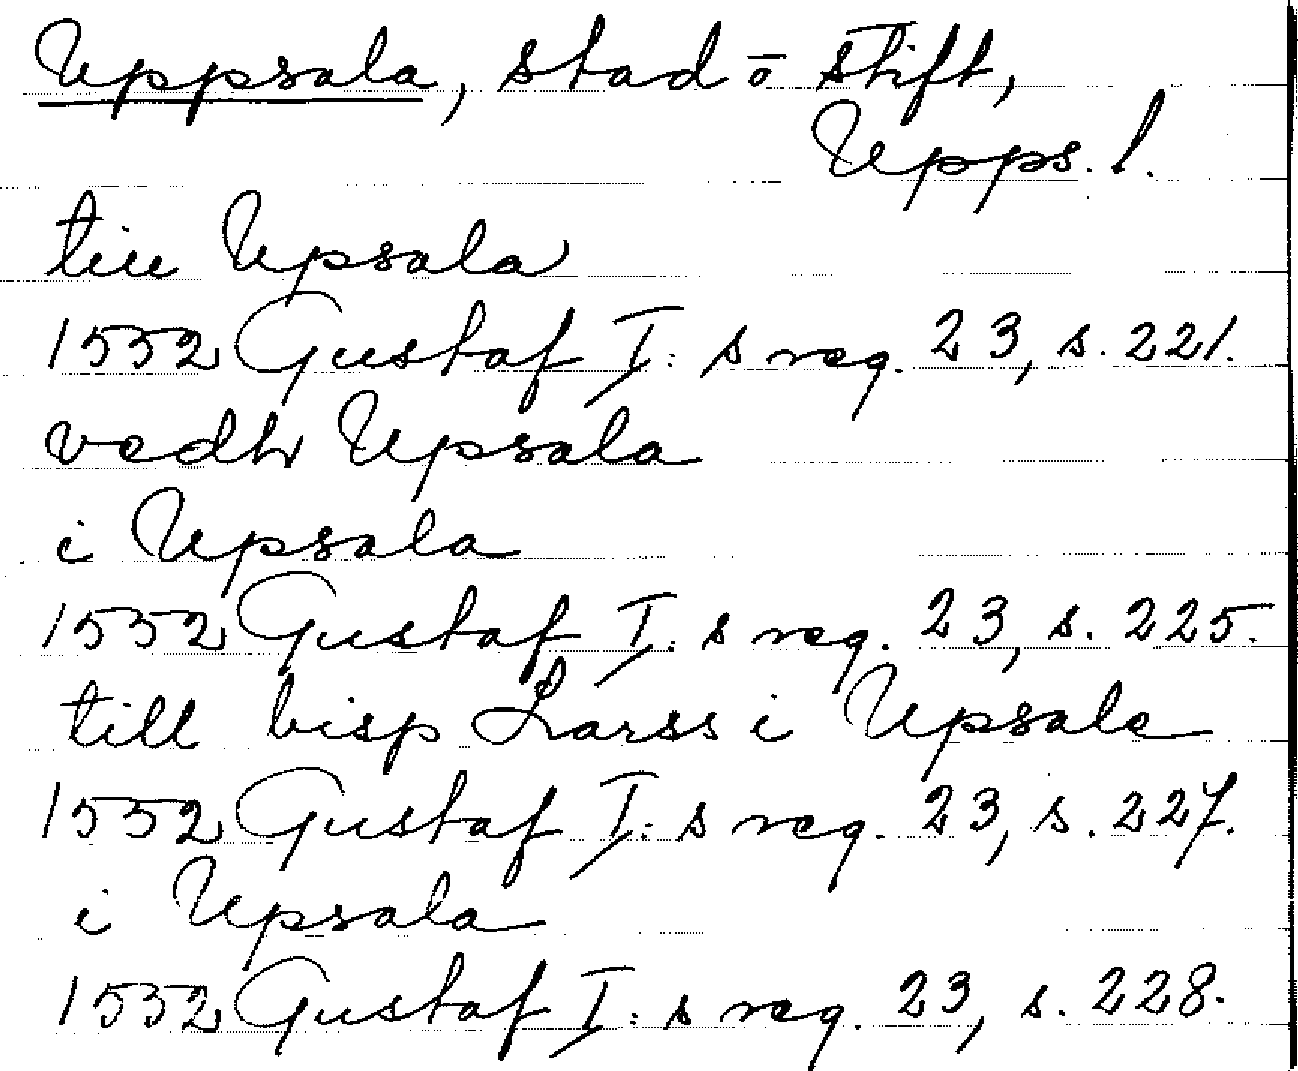 Uppsala, stad o stift,
Upps. l.
till Upsala
1552 Gustaf I:s reg. 23, s. 221.
vedh Upsala
i Upsala
1552 Gustaf I:s reg. 23, s. 225.
till bisp Larss i Upsale
1552 Gustaf I:s reg. 23, s. 227.
i Upsala
1552 Gustaf I:s reg. 23, s. 228.